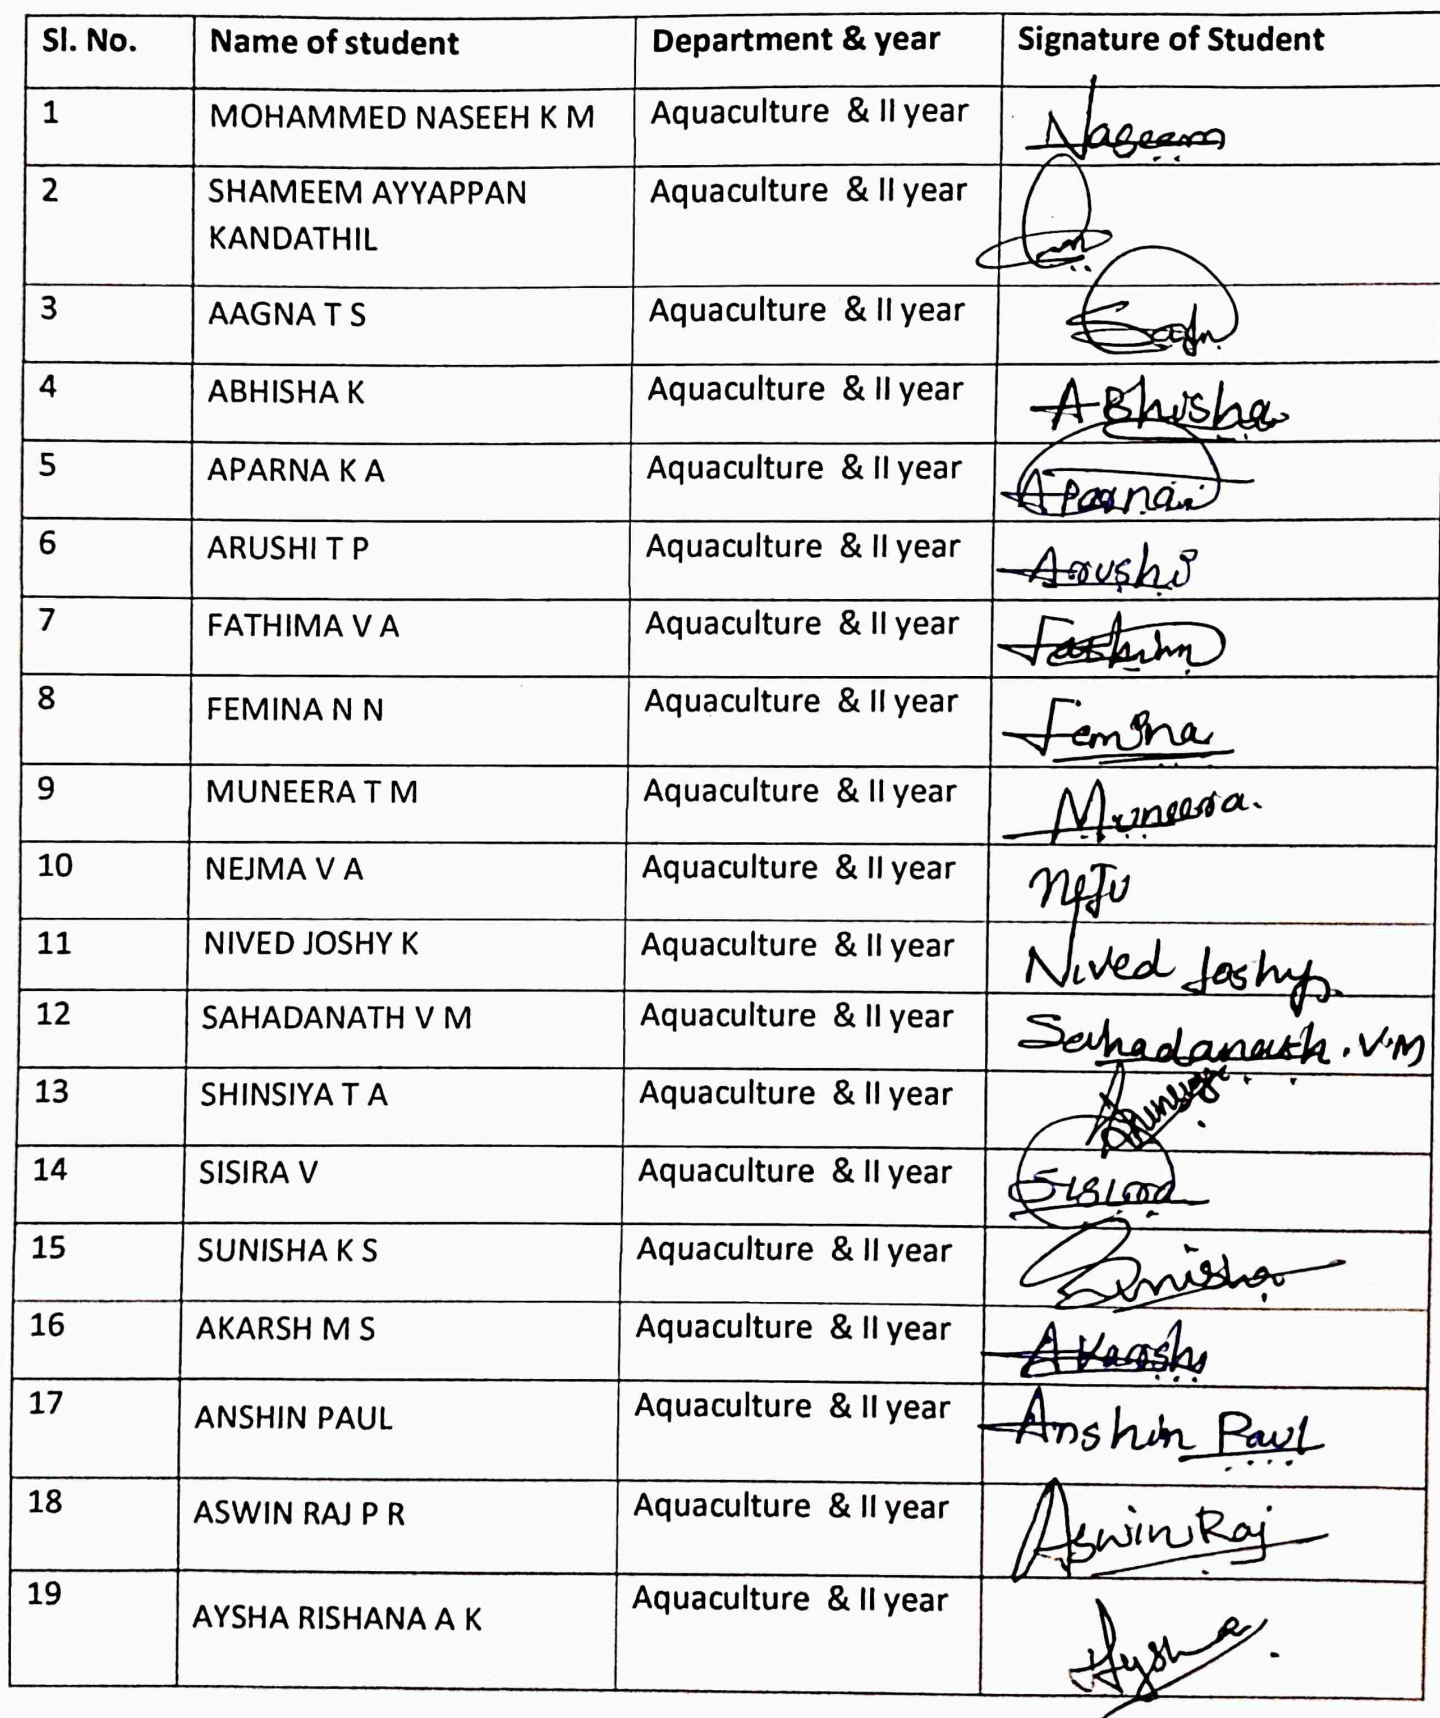 Sl. No. Name of student Department & year Signature of Student
1 MOHAMMED NASEEH K M Aquaculture & II year Naseem
2 SHAMEEM AYYAPPAN Aquaculture & II year
KANDATHIL
3 AAGNA T S Aquaculture & II year
4 ABHISHA K Aquaculture & II year ABhisha
5 APARNA K A Aquaculture & II year Aparna
6 ARUSHI T P Aquaculture & II year Arushi
7 FATHIMA V A Aquaculture & II year Fathim
8 FEMINA N N Aquaculture & II year Femina
9 MUNEERA T M Aquaculture & II year Muneera.
10 NEJMA V A Aquaculture & II year
11 NIVED JOSHY K Aquaculture & II year Nived Joshy
12 SAHADANATH V M Aquaculture & II year Sahadanath. V.M
13 SHINSIYA T A Aquaculture & II year
14 SISIRA V Aquaculture & II year Sisira
15 SUNISHA K S Aquaculture & II year Sunisha
16 AKARSH M S Aquaculture & II year Akarsh
17 ANSHIN PAUL Aquaculture & II year Anshin Paul
18 ASWIN RAJ P R Aquaculture & II year Aswin Raj
19 AYSHA RISHANA A K Aquaculture & II year Aysha